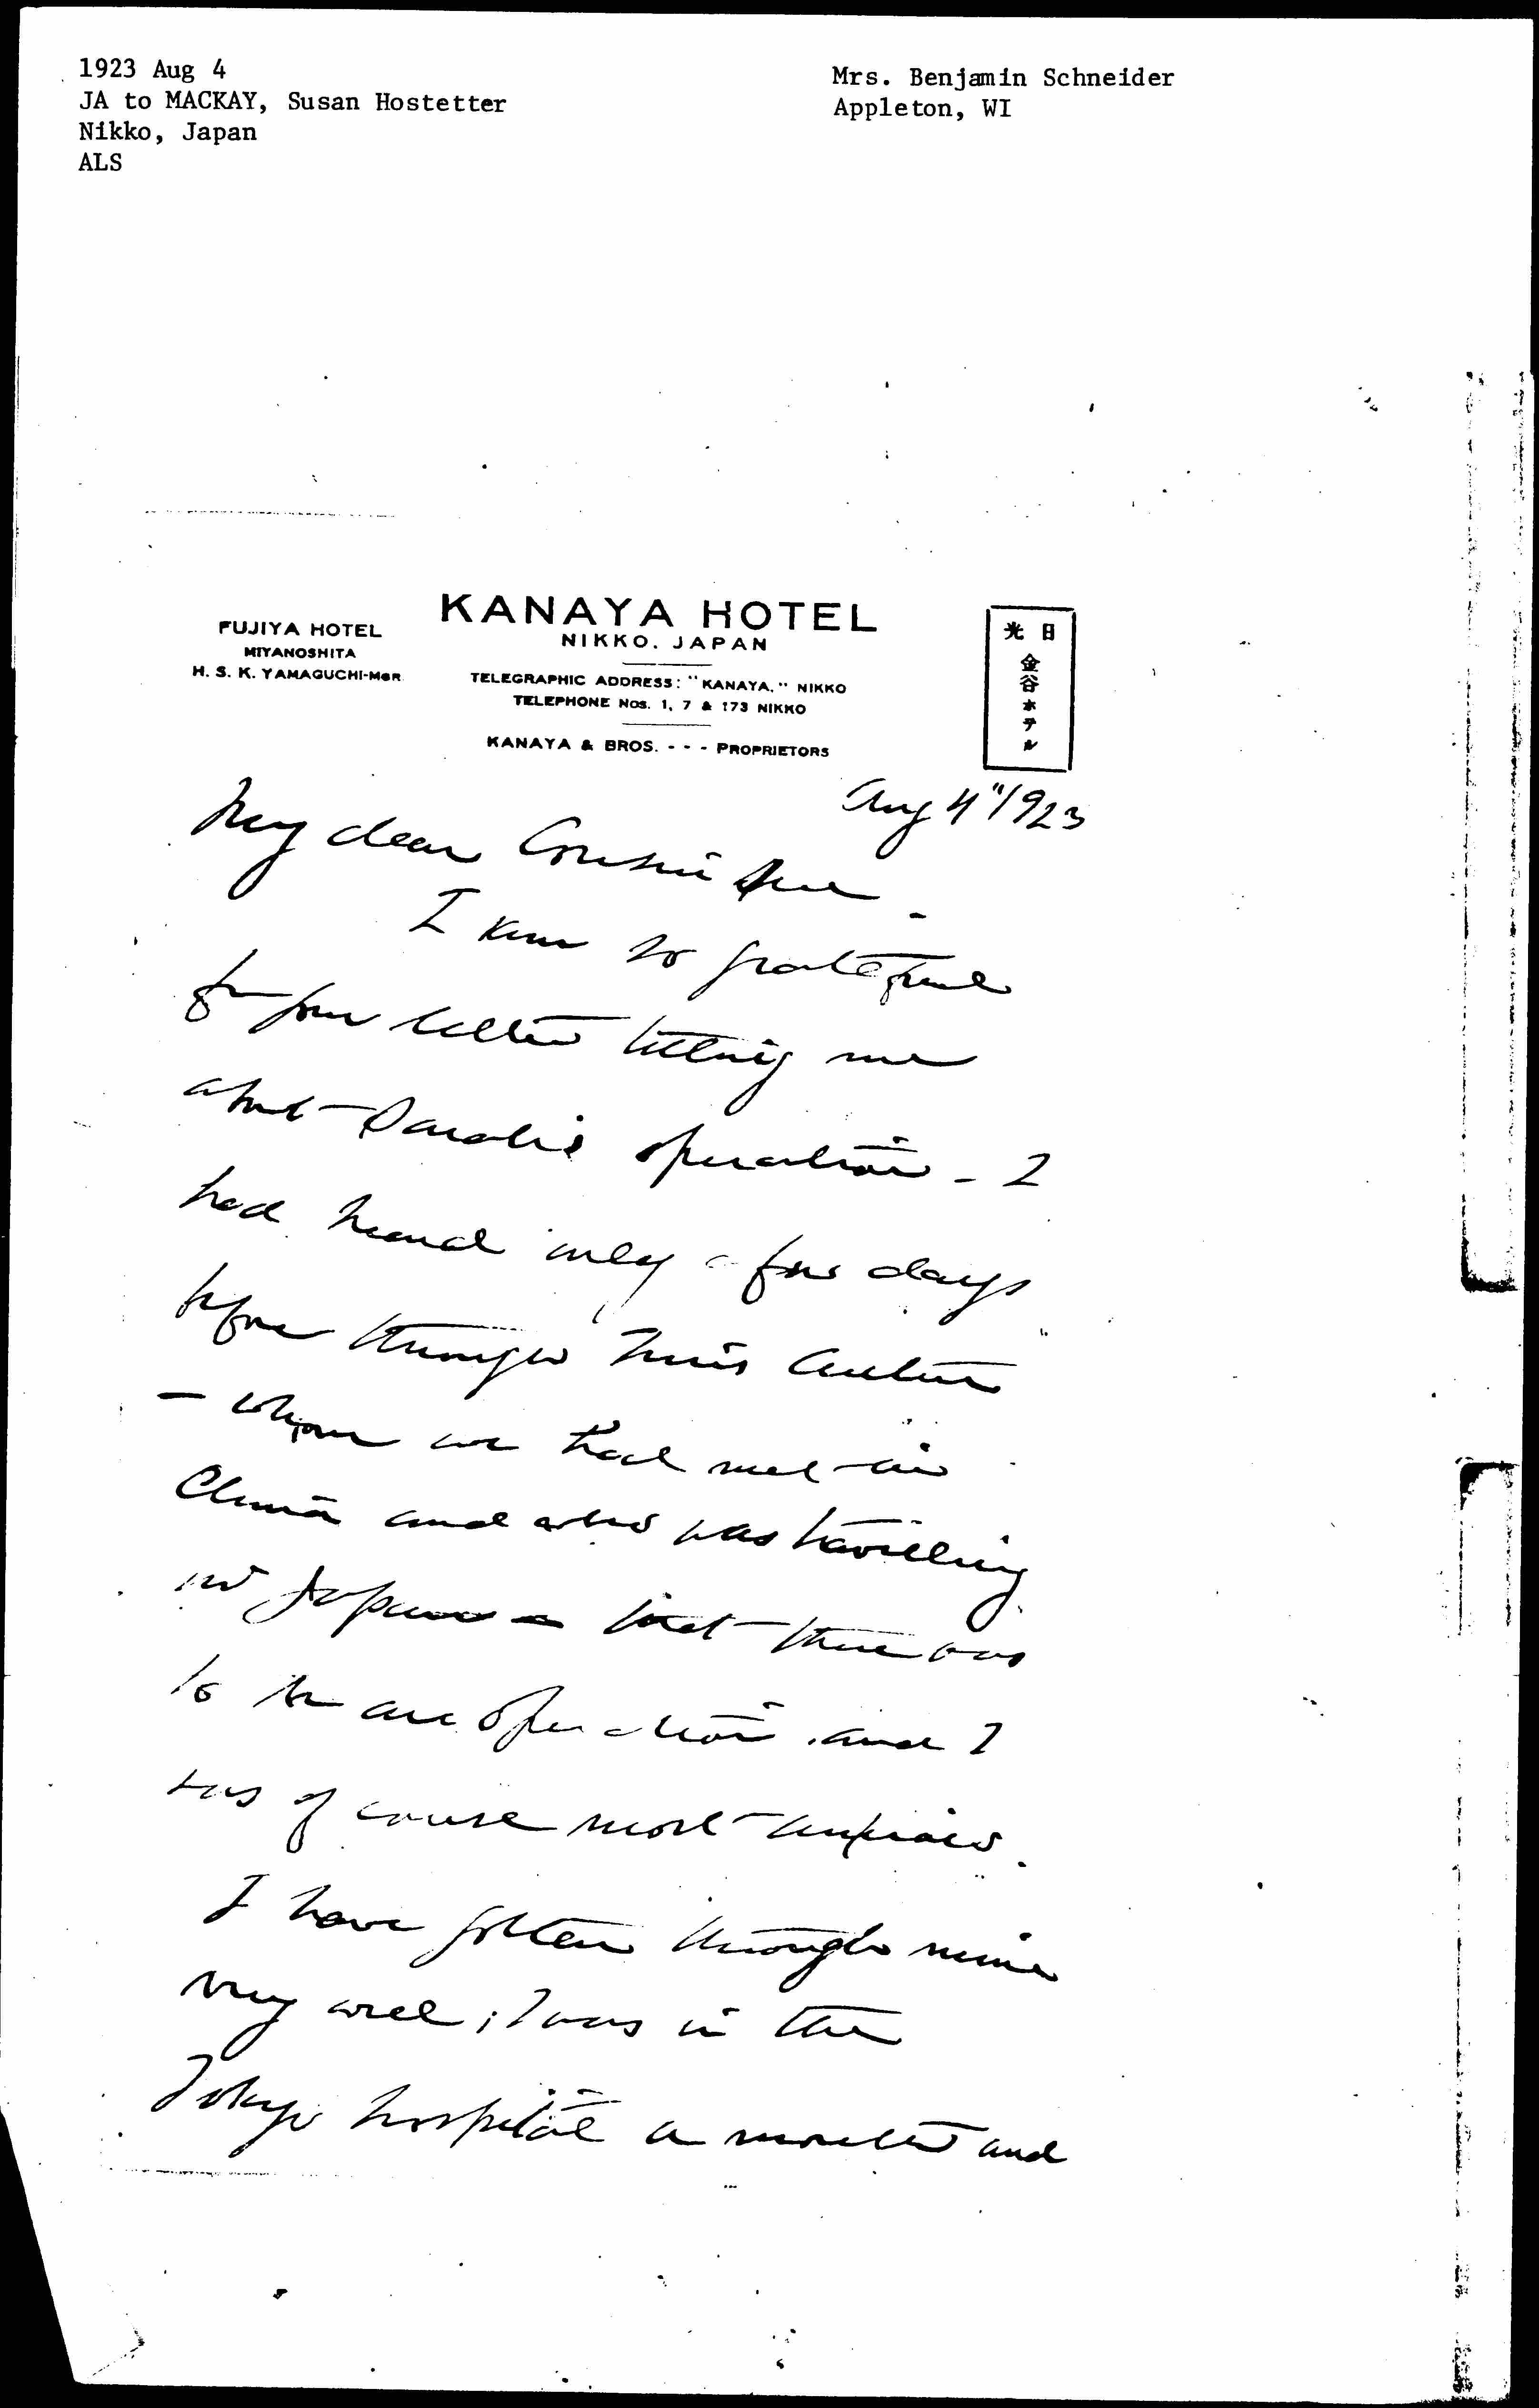 1923 Aug 4
JA to MACKAY, Susan Hostetter
Nikko, Japan
ALS
Mrs. Benjamin Schneider
Appleton, WI
FUJIYA HOTEL
MIYANOSHITA
H. S. K. YAMAGUCHI-MGR
KANAYA HOTEL
NIKKO, JAPAN
TELEGRAPHIC ADDRESS: "KANAYA," NIKKO
TELEPHONE NOS. 1, 7 & 173 NIKKO
KANAYA & BROS. - - - PROPRIETORS
光日
金谷ホテル
Aug 4" 1923
My dear Cousin Sue -
I am so grateful
for your letter telling me
about operation - I
had heard only a few days
before through Miss
- whom we had met in
China and who was travelling
in Japan - that there was
to be an operation, and I
was of course most anxious.
I have gotten through mine
very well; I was in the
Tokyo hospital a month and